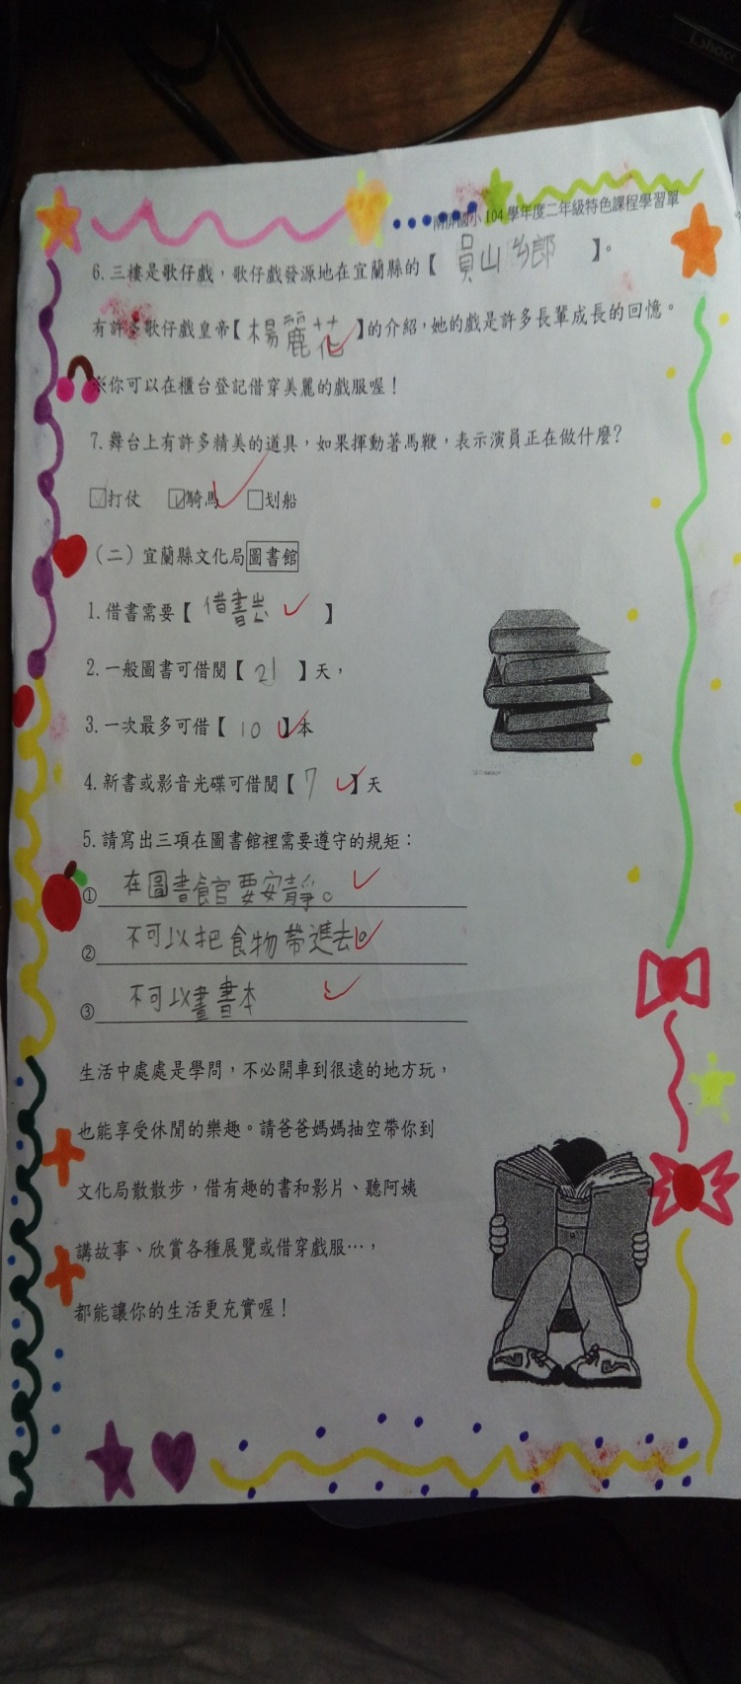 南屏國小104學年度二年級特色課程學習單
6.三樓是歌仔戲，歌仔戲發源地在宜蘭縣的【員山鄉】。
有許多歌仔戲皇帝【楊麗花】的介紹，她的戲是許多長輩成長的回憶。
※你可以在櫃台登記借穿美麗的戲服喔！
7.舞台上有許多精美的道具，如果揮動著馬鞭，表示演員正在做什麼？
□打仗 ☑騎馬 □划船
（二）宜蘭縣文化局圖書館
1.借書需要【借書】
2.一般圖書可借閱【21】天，
3.一次最多可借【10】本
4.新書或影音光碟可借閱【7】天
5.請寫出三項在圖書館裡需要遵守的規矩：
①在圖書館要安靜。
②不可以把食物帶進去。
③不可以畫書本
生活中處處是學問，不必開車到很遠的地方玩，
也能享受休閒的樂趣。請爸爸媽媽抽空帶你到
文化局散散步，借有趣的書和影片、聽阿姨
講故事、欣賞各種展覽或借穿戲服…，
都能讓你的生活更充實喔！